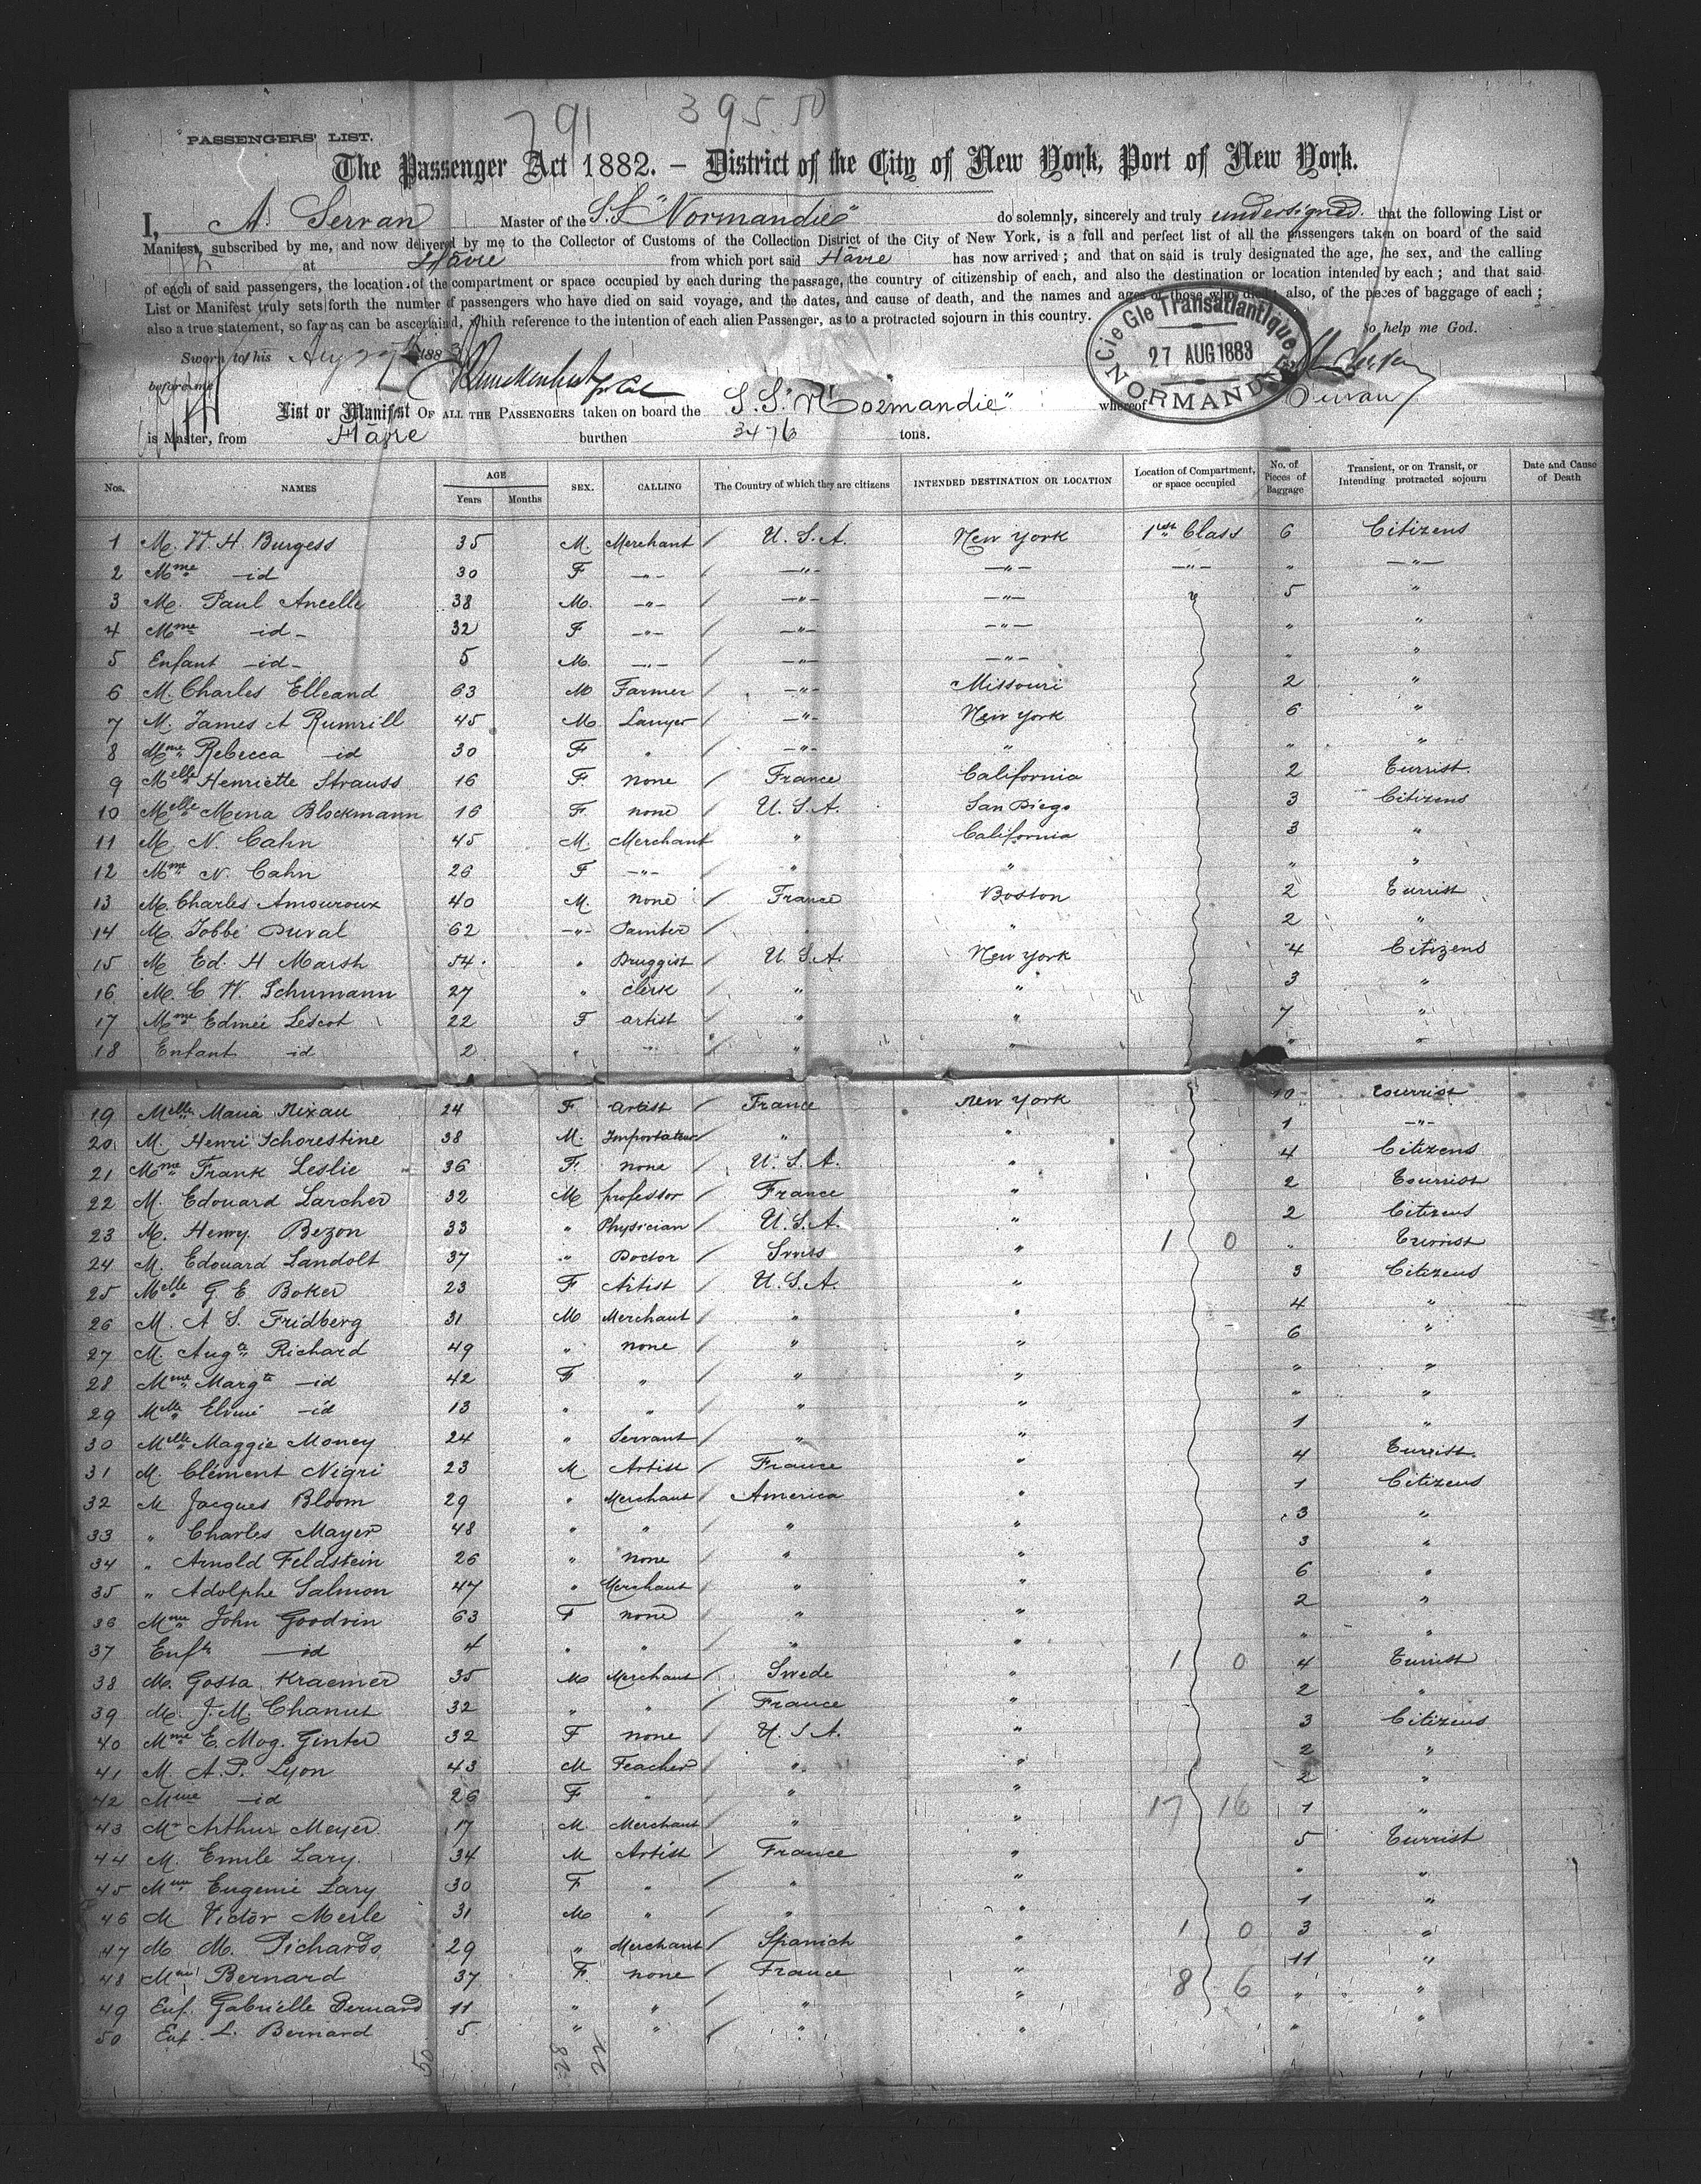 791 395.50
"PASSENGERS' LIST.
The Passenger Act 1882. — District of the City of New York, Port of New York.
I, A. Servan Master of the S.S. "Normandie" do solemnly, sincerely and truly undersigned. that the following List or
Manifest, subscribed by me, and now delivered by me to the Collector of Customs of the Collection District of the City of New York, is a full and perfect list of all the passengers taken on board of the said
at Hâvre from which port said Hâvre has now arrived; and that on said is truly designated the age, the sex, and the calling
of each of said passengers, the location of the compartment or space occupied by each during the passage, the country of citizenship of each, and also the destination or location intended by each; and that said
List or Manifest truly sets forth the number of passengers who have died on said voyage, and the dates, and cause of death, and the names and ages of those who died; also, of the peces of baggage of each;
also a true statement, so far as can be ascertaind, whith reference to the intention of each alien Passenger, as to a protracted sojourn in this country. So help me God.
Cie Gle Transatlantique
27 AUG 1883
NORMANDIE
Sworn to this Aug 27th 1883
before me
List or Manifest OF ALL THE PASSENGERS taken on board the S.S. "Normandie" whereof Servan
is Master, from Hâvre burthen 3476 tons.
Nos. NAMES AGE Years Months SEX. CALLING The Country of which they are citizens INTENDED DESTINATION OR LOCATION Location of Compartment, or space occupied No. of Pieces of Baggage Transient, or on Transit, or Intending protracted sojourn Date and Cause of Death
1 M. W. H. Burgess 35 M. Merchant / U. S. A. New York 1st Class 6 Citizens
2 Mme —id 30 F —"— / —"— —"— —"— " —"—
3 M. Paul Ancelle 38 M. —"— / —"— —"— " 5 "
4 Mme —id— 32 F —"— / —"— —"— " "
5 Enfant —id— 5 M. —"— / —"— —"— " "
6 M. Charles Elleand 63 M Farmer / —"— Missouri 2 "
7 M. James A Rumrill 45 M. Lawyer / —"— New York 6 "
8 Mme Rebecca id 30 F " / —"— " " "
9 Melle Henriette Strauss 16 F. none / France California 2 Turrist.
10 Melle Mena Blockmann 16 F. none / U. S. A. San Diego 3 Citizens
11 M. N. Cahn 45 M. Merchant " California 3 "
12 Mme N. Cahn 26 F —"— / " " " "
13 M. Charles Amouroux 40 M. none / France Boston 2 Turrist
14 M. Tobbé Duval 62 —"— Painter / " " 2 "
15 M Ed. H Marsh 54. " Druggist / U. S. A. New York 4 Citizens
16 M. C. W. Schumann 27 " clerk / " " 3 "
17 Mme Edmée Lescot 22 F artist / " " 7 "
18 Enfant id 2 " " / " " " "
19 Melle Maria Nixau 24 F artist / France New York 10 tourrist
20 M. Henri Schorestine 38 M. Importateur " " 1 —"—
21 Mme Frank Leslie 36 F. none / U. S. A. " 4 Citizens
22 M. Edouard Larcher 32 M professor / France " 2 Tourrist
23 M. Henry Bezon 33 " Physician / U. S. A. " 2 Citizens
24 M. Edouard Landolt 37 " Doctor / Swiss " 1 0 " Turrist
25 Melle G E. Boker 23 F Artist / U. S. A. " 3 Citizens
26 M. A S. Fridberg 31 M Merchant / " " 4 "
27 M. Augte Richard 49 " none / " " 6 "
28 Mme Margte —id 42 F " / " " " "
29 Melle Elvine —id 13 " " / " " " "
30 Melle Maggie Money 24 " Servant / " " 1 "
31 M. Clément Nigri 23 M. Artist / France " 4 Turrist.
32 M Jacques Bloom 29 " Merchant / America " 1 Citizens
33 " Charles Mayer 48 " " / " " 3 "
34 " Arnold Feldstein 26 " none / " " 3 "
35 " Adolphe Salmon 47 " Merchant / " " 6 "
36 Mme John Goodvin 63 F none / " " 2 "
37 Enft —id 4 " " / " " " "
38 M. Gosta Kraemer 35 M Merchant / Swede " 1 0 4 Turrist
39 M. J. M. Chanut 32 " " / France " 2 "
40 Mme E. Mog. Ginter 32 F none / U. S. A. " 3 Citizens
41 M. A. P. Lyon 43 M Teacher / " " 2 "
42 Mme —id 26 F " / " " 2 "
43 Mr Arthur Meyer 17 M. Merchant / " " 17 16 1 "
44 M. Emile Lary. 34 M Artist / France " 5 Turrist
45 Mme Eugenie Lary 30 F " / " " " "
46 M Victor Merle 31 M " / " " 1 "
47 M M. Pichardo 29 " Merchant / Spanich " 1 0 3 "
48 Mme Bernard 37 F. none / France " 8 6 11 "
49 Enf. Gabrielle Bernard 11 " " / " " " "
50 Enf. L. Bernard 5 " " / " " " "
50 28 22